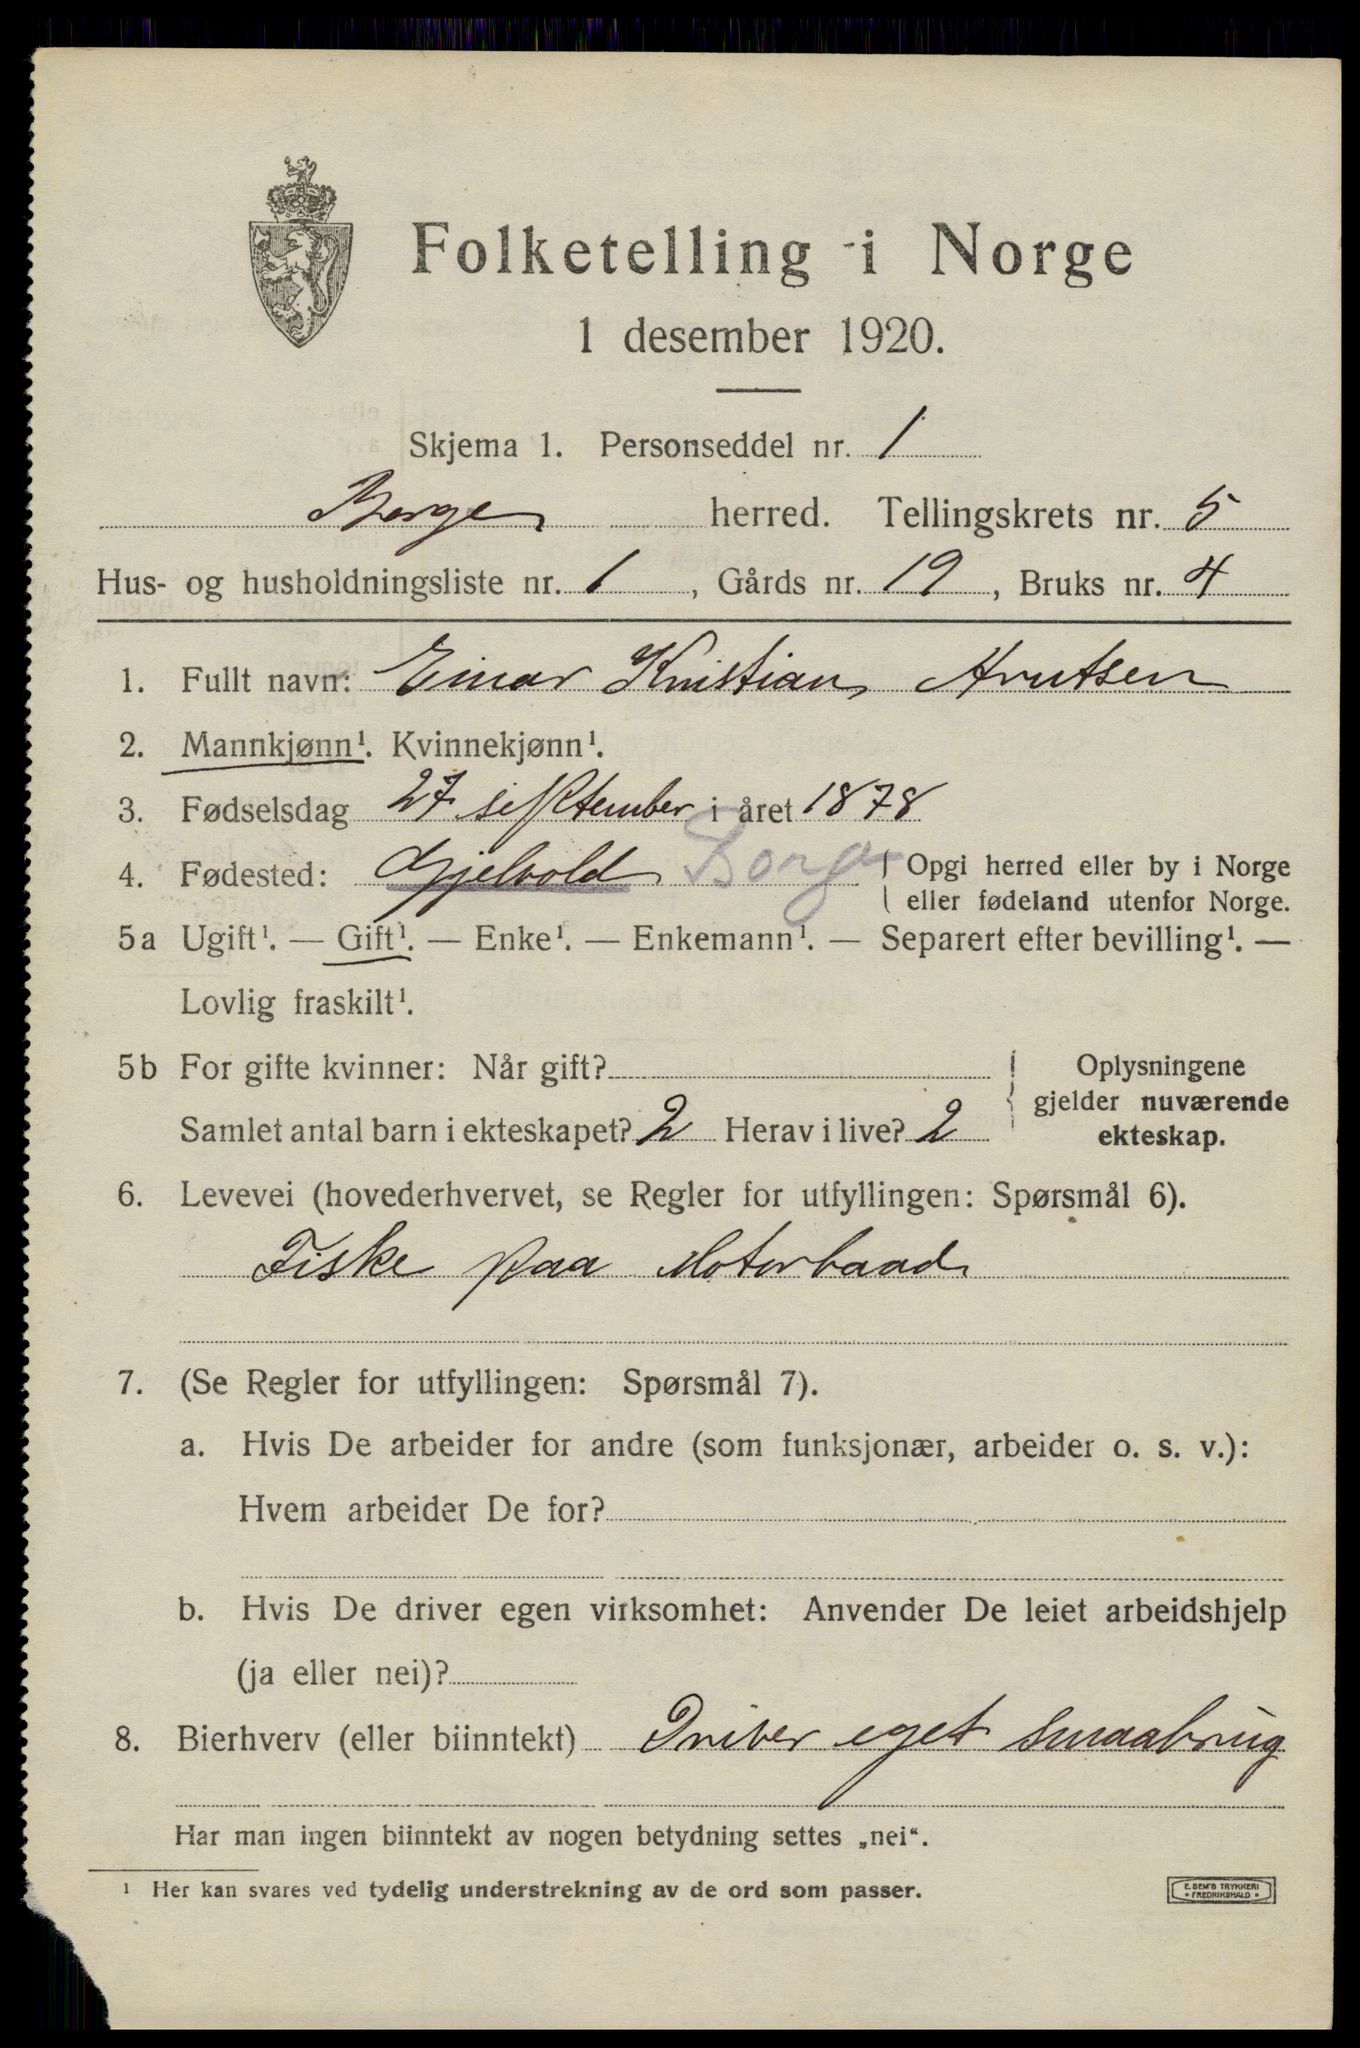 Folketelling i Norge
1 desember 1920.
Skjema 1. Personseddel nr. 1
Borge herred. Tellingskrets nr. 5
Hus- og husholdningsliste nr. 1, Gårds nr. 19, Bruks nr. 4
1. Fullt navn: Einar Kristian Knutsen
2. Mannkjønn¹. Kvinnekjønn¹.
3. Fødselsdag 27 september i året 1878
4. Fødested: Gjelvold Borge { Opgi herred eller by i Norge
eller fødeland utenfor Norge.
5a Ugift¹. — Gift¹. — Enke¹. — Enkemann¹. — Separert efter bevilling¹. —
Lovlig fraskilt¹.
5b For gifte kvinner: Når gift?
Samlet antal barn i ekteskapet? 2 Herav i live? 2
Oplysningene
gjelder nuværende
ekteskap.
6. Levevei (hovederhvervet, se Regler for utfyllingen: Spørsmål 6).
Fiske paa Motorbaad
7. (Se Regler for utfyllingen: Spørsmål 7).
a. Hvis De arbeider for andre (som funksjonær, arbeider o. s. v.):
Hvem arbeider De for?
b. Hvis De driver egen virksomhet: Anvender De leiet arbeidshjelp
(ja eller nei)?
8. Bierhverv (eller biinntekt) Driver eget smaabrug
Har man ingen biinntekt av nogen betydning settes „nei“.
¹ Her kan svares ved tydelig understrekning av de ord som passer.
E. SEM'S TRYKKERI
FREDRIKSHALD